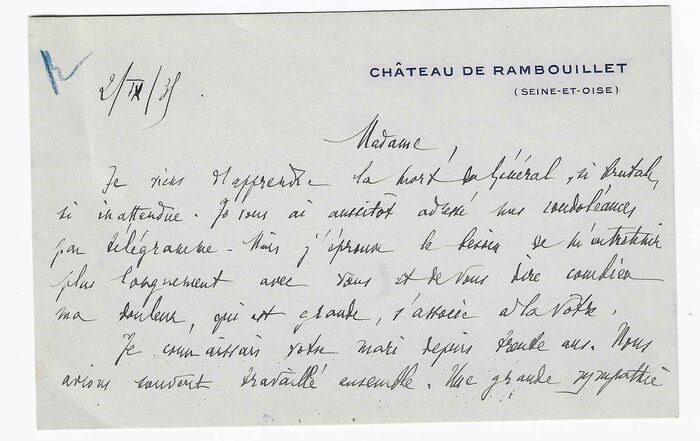 CHÂTEAU DE RAMBOUILLET
(SEINE-ET-OISE)
2/IX/35.
Madame,
Je viens d'apprendre la mort du Général, si brutale,
si inattendue. Je vous ai aussitôt adressé mes condoléances
par télégramme. Mais j'éprouve le besoin de m'entretenir
plus longuement avec vous et de vous dire combien
ma douleur, qui est grande, s'associe à la vôtre.
Je connaissais votre mari depuis trente ans. Nous
avions souvent travaillé ensemble. Une grande sympathie